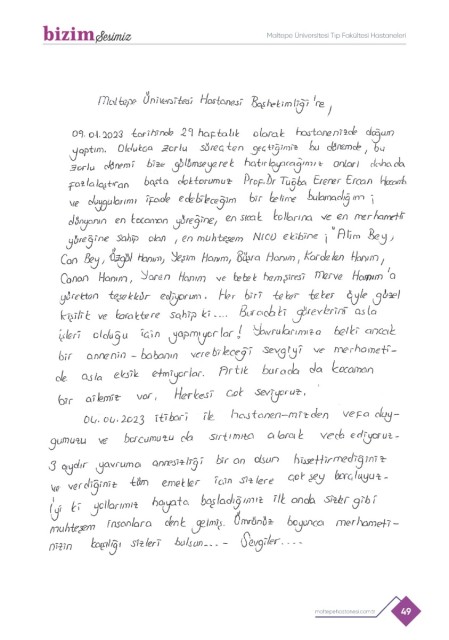 bizim Sesimiz
Maltepe Üniversitesi Tıp Fakültesi Hastaneleri
Maltepe Üniversitesi Hastanesi Başhekimliği're,
09.01.2023 tarihinde 29 haftalık olarak hastanenizde doğum
yaptım. Oldukça zorlu süreçten geçtiğimiz bu dönemde, bu
zorlu dönemi bize gülümseyerek hatırlayacağımız anları daha da
fazlalaştıran başta doktorumuz Prof.Dr Tuğba Erener Ercan Hocamıza
ve duygularımı ifade edebileceğim bir kelime bulamadığım ;
dünyanın en kocaman yüreğine, en sıcak kollarına ve en merhametli
yüreğine sahip olan, en muhteşem NICU ekibine ; "Atim Bey,
Can Bey, Özgül Hanım, Yeşim Hanım, Büşra Hanım, Kardelen Hanım,
Canan Hanım, Yaren Hanım ve bebek hemşiresi Merve Hanım'a
yürekten teşekkür ediyorum. Her biri teker teker öyle güzel
kişilik ve karaktere sahip ki.... Buradaki görevlerini asla
işleri olduğu için yapmıyorlar! Yavrularımıza belki ancak
bir annenin - babanın verebileceği sevgiyi ve merhameti-
de asla eksik etmiyorlar. Artık burada da kocaman
bir ailemiz var. Herkesi çok seviyoruz.
04.04.2023 itibari ile hastanen-mizden vefa duy-
gumuzu ve borcumuzu da sırtımıza alarak veda ediyoruz.
3 aydır yavruma annesizliği bir an olsun hissettirmediğiniz
ve verdiğiniz tüm emekler için sizlere çok şey borçluyuz.
İyi ki yollarımız hayata başladığımız ilk anda sizler gibi
muhteşem insanlara denk gelmiş. Ömrünüz boyunca merhameti-
nizin karşılığı sizleri bulsun.... Sevgiler....
maltepehastanesi.com.tr
49